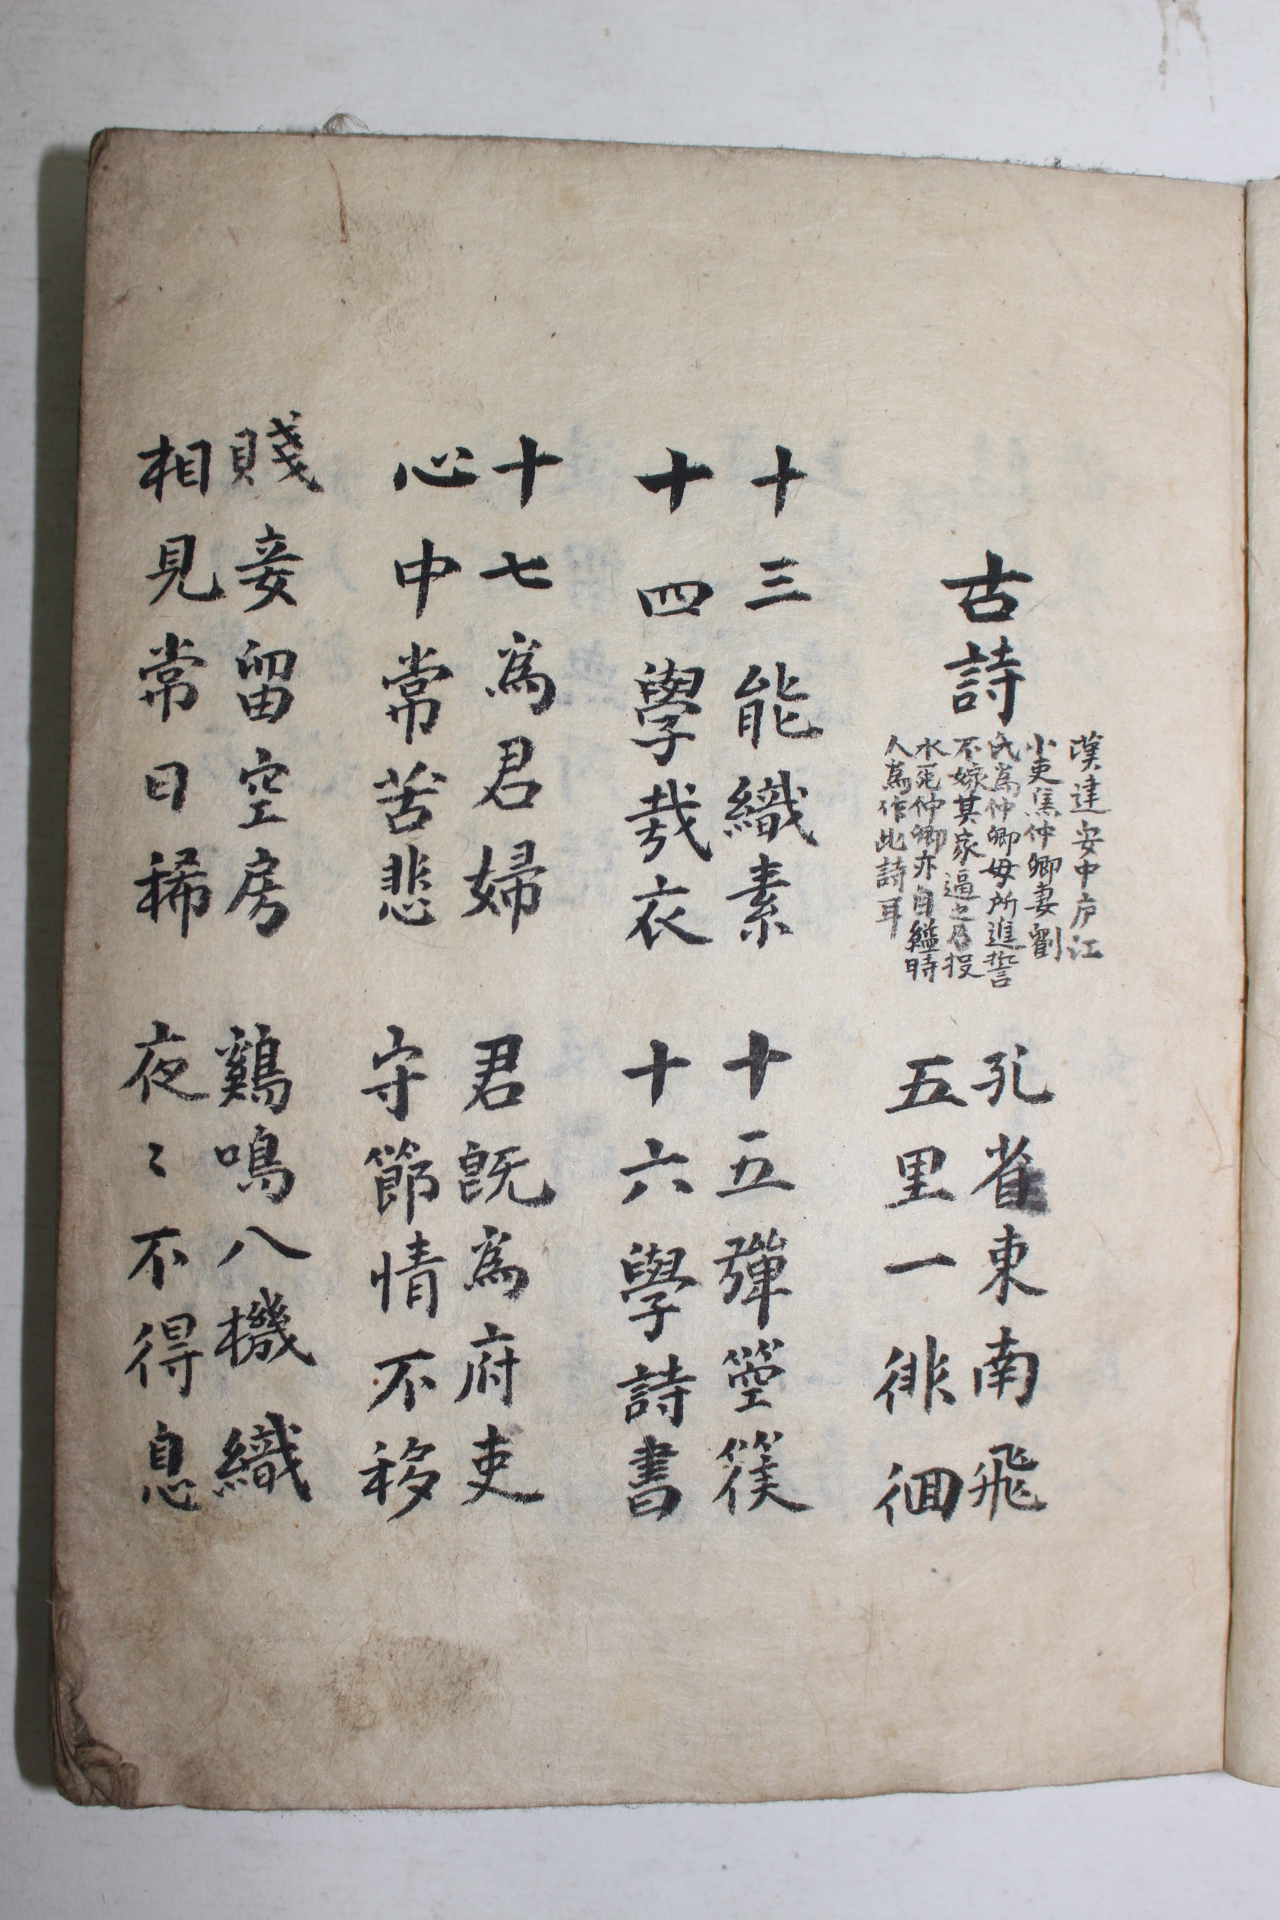 古詩
漢建安中庐江
小吏焦仲卿妻劉
氏為仲卿母所進誓
不嫁其家逼之乃投
水死仲卿亦自縊時
人為作此詩耳
孔雀東南飛
五里一徘徊
十三能織素
十四學裁衣
十五彈箜篌
十六學詩書
十七為君婦
心中常苦悲
君既為府吏
守節情不移
賤妾留空房
相見常日稀
鷄鳴八機織
夜〻不得息